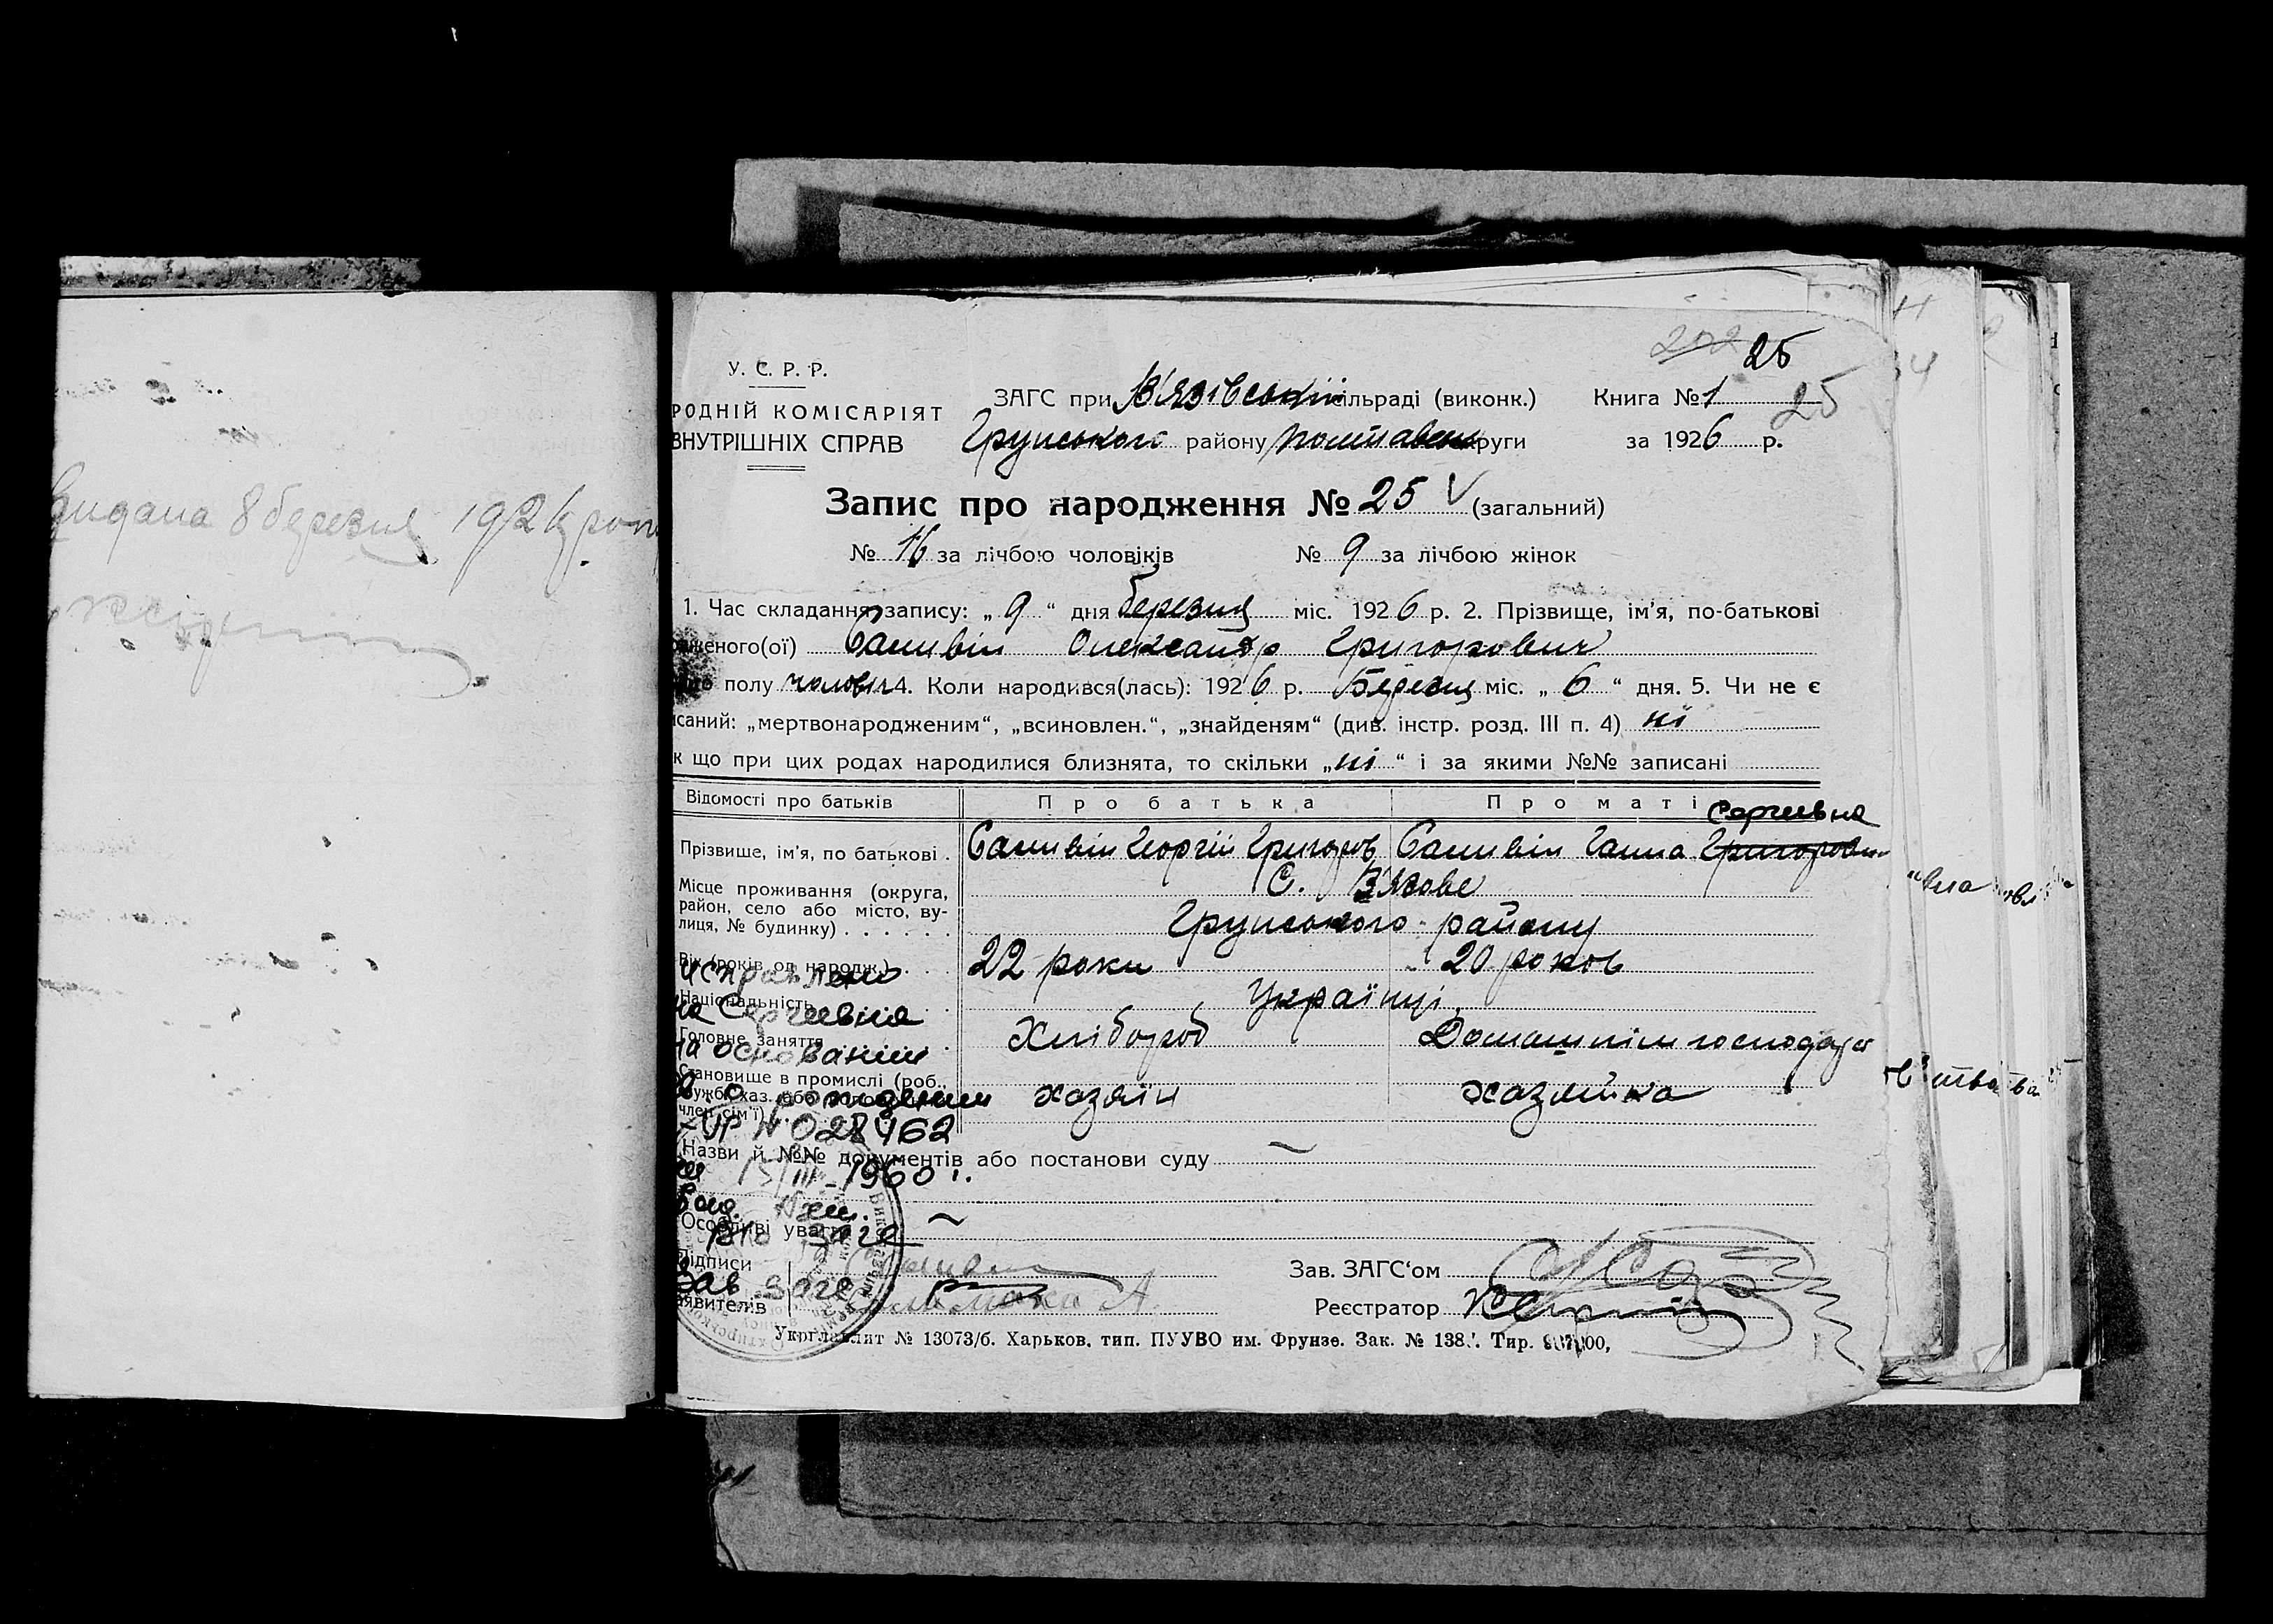 видана 8 березня 1926 року
25
25
У. С. Р. Р.
РОДНІЙ КОМІСАРІЯТ
ВНУТРІШНІХ СПРАВ
ЗАГС при В'язівській сільраді (виконк.)
Грунського району Полтавськ округи
Книга № 1
за 1926 р.
Запис про народження № 25 V (загальний)
№ 16 за лічбою чоловіків № 9 за лічбою жінок
1. Час складання запису: „ 9 “ дня березня міс. 1926 р. 2. Прізвище, ім'я, по-батькові
дженого(ої) Самвін Олександр Григорович
полу чоловіч 4. Коли народився(лась): 1926 р. Березня міс. „ 6 “ дня. 5. Чи не є
исаний: „мертвонародженим“, „всиновлен.“, „знайденям“ (див. інстр. розд. III п. 4) ні
к що при цих родах народилися близнята, то скільки „ні“ і за якими №№ записані
Відомості про батьків Про батька Про маті
Сергиевна
Прізвище, ім'я, по батькові . Самвін Георгій Григоров Самвін Ганна Григоровн
Місце проживання (округа, район, село або місто, ву-
лиця, № будинку) . . . . . .
С. В'язове
Грунського району
Вік (років од народж.) 22 роки 20 років
Національність Українці
Головне заняття Хлібороб Домашнім господар
Становище в промислі (роб., службі, хаз. або член сім'ї) хазяїн хазяйка
Исправлено
на Сергиевна
на основании
о рождении
УР № 028462
15/III-1960 г.
Назви й №№ документів або постанови суду —
Особливі уваги —
Зав. загс
Підписи
заявителів
Зав. ЗАГС‘ом
Реєстратор
Укрглавлит № 13073/б. Харьков, тип. ПУУВО им. Фрунзе. Зак. № 138 Тир.